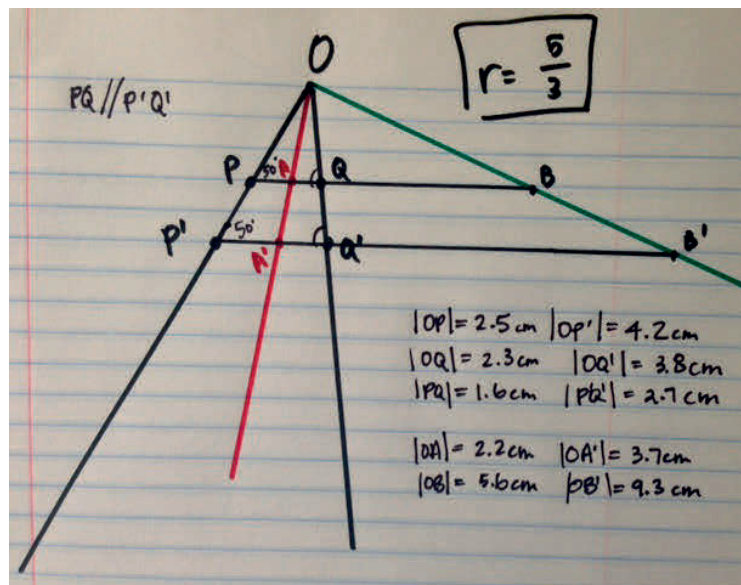 O
r = 5/3
PQ//P'Q'
P 50° A Q B
P' 50° A' Q' B'
|OP| = 2.5 cm |OP'| = 4.2 cm
|OQ| = 2.3 cm |OQ'| = 3.8 cm
|PQ| = 1.6 cm |P'Q'| = 2.7 cm
|OA| = 2.2 cm |OA'| = 3.7 cm
|OB| = 5.6 cm |OB'| = 9.3 cm